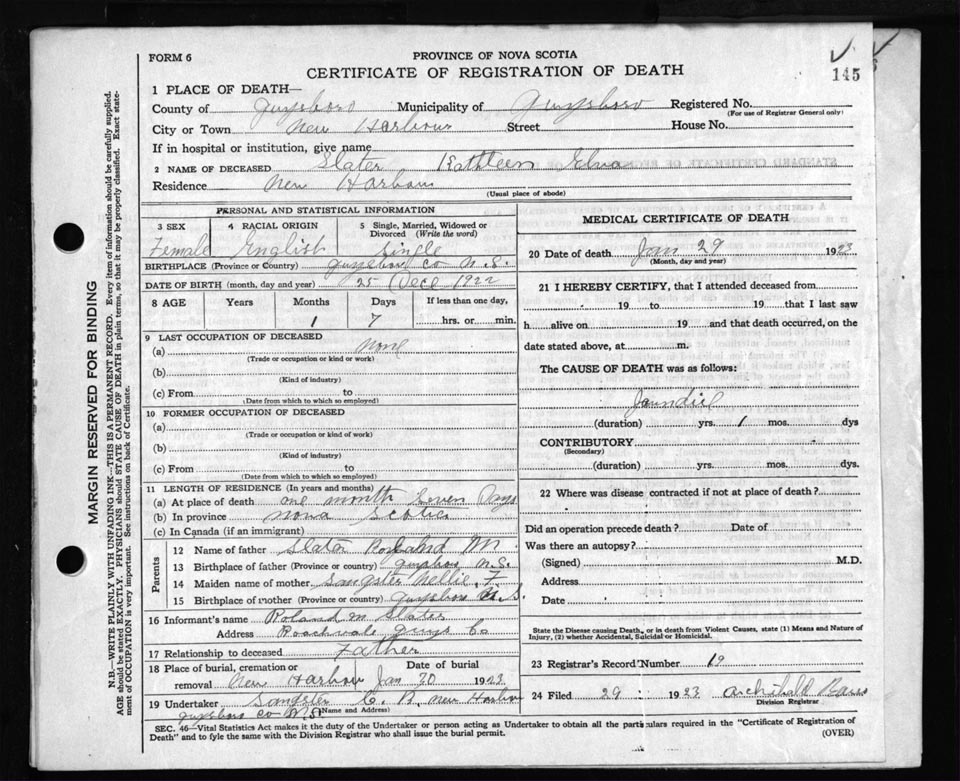 FORM 6
PROVINCE OF NOVA SCOTIA
CERTIFICATE OF REGISTRATION OF DEATH
145
1 PLACE OF DEATH—
County of Guysboro Municipality of Guysboro Registered No.
(For use of Registrar General only)
City or Town New Harbour Street House No.
If in hospital or institution, give name
2 NAME OF DECEASED Slater Kathleen Elva
Residence New Harbour
(Usual place of abode)
MARGIN RESERVED FOR BINDING
N.B.—WRITE PLAINLY WITH UNFADING INK—THIS IS A PERMANENT RECORD. Every item of information should be carefully supplied.
AGE should be stated EXACTLY. PHYSICIANS should STATE CAUSE OF DEATH in plain terms, so that it may be properly classified. Exact statement
of OCCUPATION is very important. See instructions on back of Certificate.
PERSONAL AND STATISTICAL INFORMATION
3 SEX 4 RACIAL ORIGIN 5 Single, Married, Widowed or Divorced (Write the word)
Female English Single
BIRTHPLACE (Province or Country) Guysboro Co N.S.
DATE OF BIRTH (month, day and year) 25 Dec 1922
8 AGE Years Months Days If less than one day,
1 7 hrs. or min.
9 LAST OCCUPATION OF DECEASED
(a) None
(Trade or occupation or kind or work)
(b)
(Kind of industry)
(c) From to
(Date from which to which so employed)
10 FORMER OCCUPATION OF DECEASED
(a)
(Trade or occupation or kind of work)
(b)
(Kind of industry)
(c) From to
(Date from which to which so employed)
11 LENGTH OF RESIDENCE (In years and months)
(a) At place of death one month seven Days
(b) In province Nova Scotia
(c) In Canada (if an immigrant)
Parents
12 Name of father Slater Roland M
13 Birthplace of father (Province or country) Guysboro N.S.
14 Maiden name of mother Sangster Nellie F
15 Birthplace of mother (Province or country) Guysboro N.S
16 Informant's name Roland M Slater
Address Roachvale Guys Co
17 Relationship to deceased Father
18 Place of burial, cremation or removal New Harbour Date of burial Jan 30 1923
19 Undertaker Sangster C. R. New Harbour
(Name and Address)
Guysboro Co N.S.
MEDICAL CERTIFICATE OF DEATH
20 Date of death Jan 29 1923
(Month, day and year)
21 I HEREBY CERTIFY, that I attended deceased from
19 to 19 that I last saw
h alive on 19 and that death occurred, on the
date stated above, at m.
The CAUSE OF DEATH was as follows:
Jaundice
(duration) yrs. 1 mos. dys
CONTRIBUTORY
(Secondary)
(duration) yrs. mos. dys.
22 Where was disease contracted if not at place of death?
Did an operation precede death? Date of
Was there an autopsy?
(Signed) M.D.
Address
Date
State the Disease causing Death, or in death from Violent Causes, state (1) Means and Nature of
Injury, (2) whether Accidental, Suicidal or Homicidal.
23 Registrar's Record Number 19
24 Filed 29 1923 Archibald
Division Registrar
SEC. 46—Vital Statistics Act makes it the duty of the Undertaker or person acting as Undertaker to obtain all the particulars required in the "Certificate of Registration of
Death" and to fyle the same with the Division Registrar who shall issue the burial permit.
(OVER)